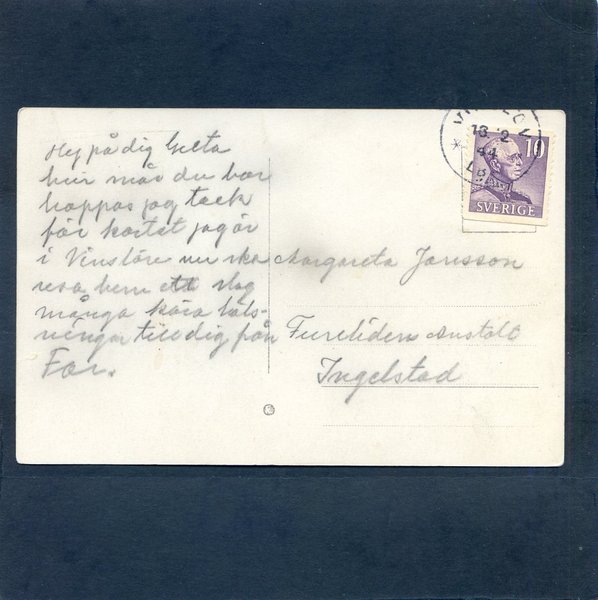 Hej på dig Greta
hur mår du bra
hoppas jag tack
för kortet jag är
i Vinslöv nu ska
resa hem ett slag
många kära häls-
ningar till dig från
Far.
Margareta Jansson
Furuliden Anstalt
Ingelstad
18 2
44
LBR
10
SVERIGE